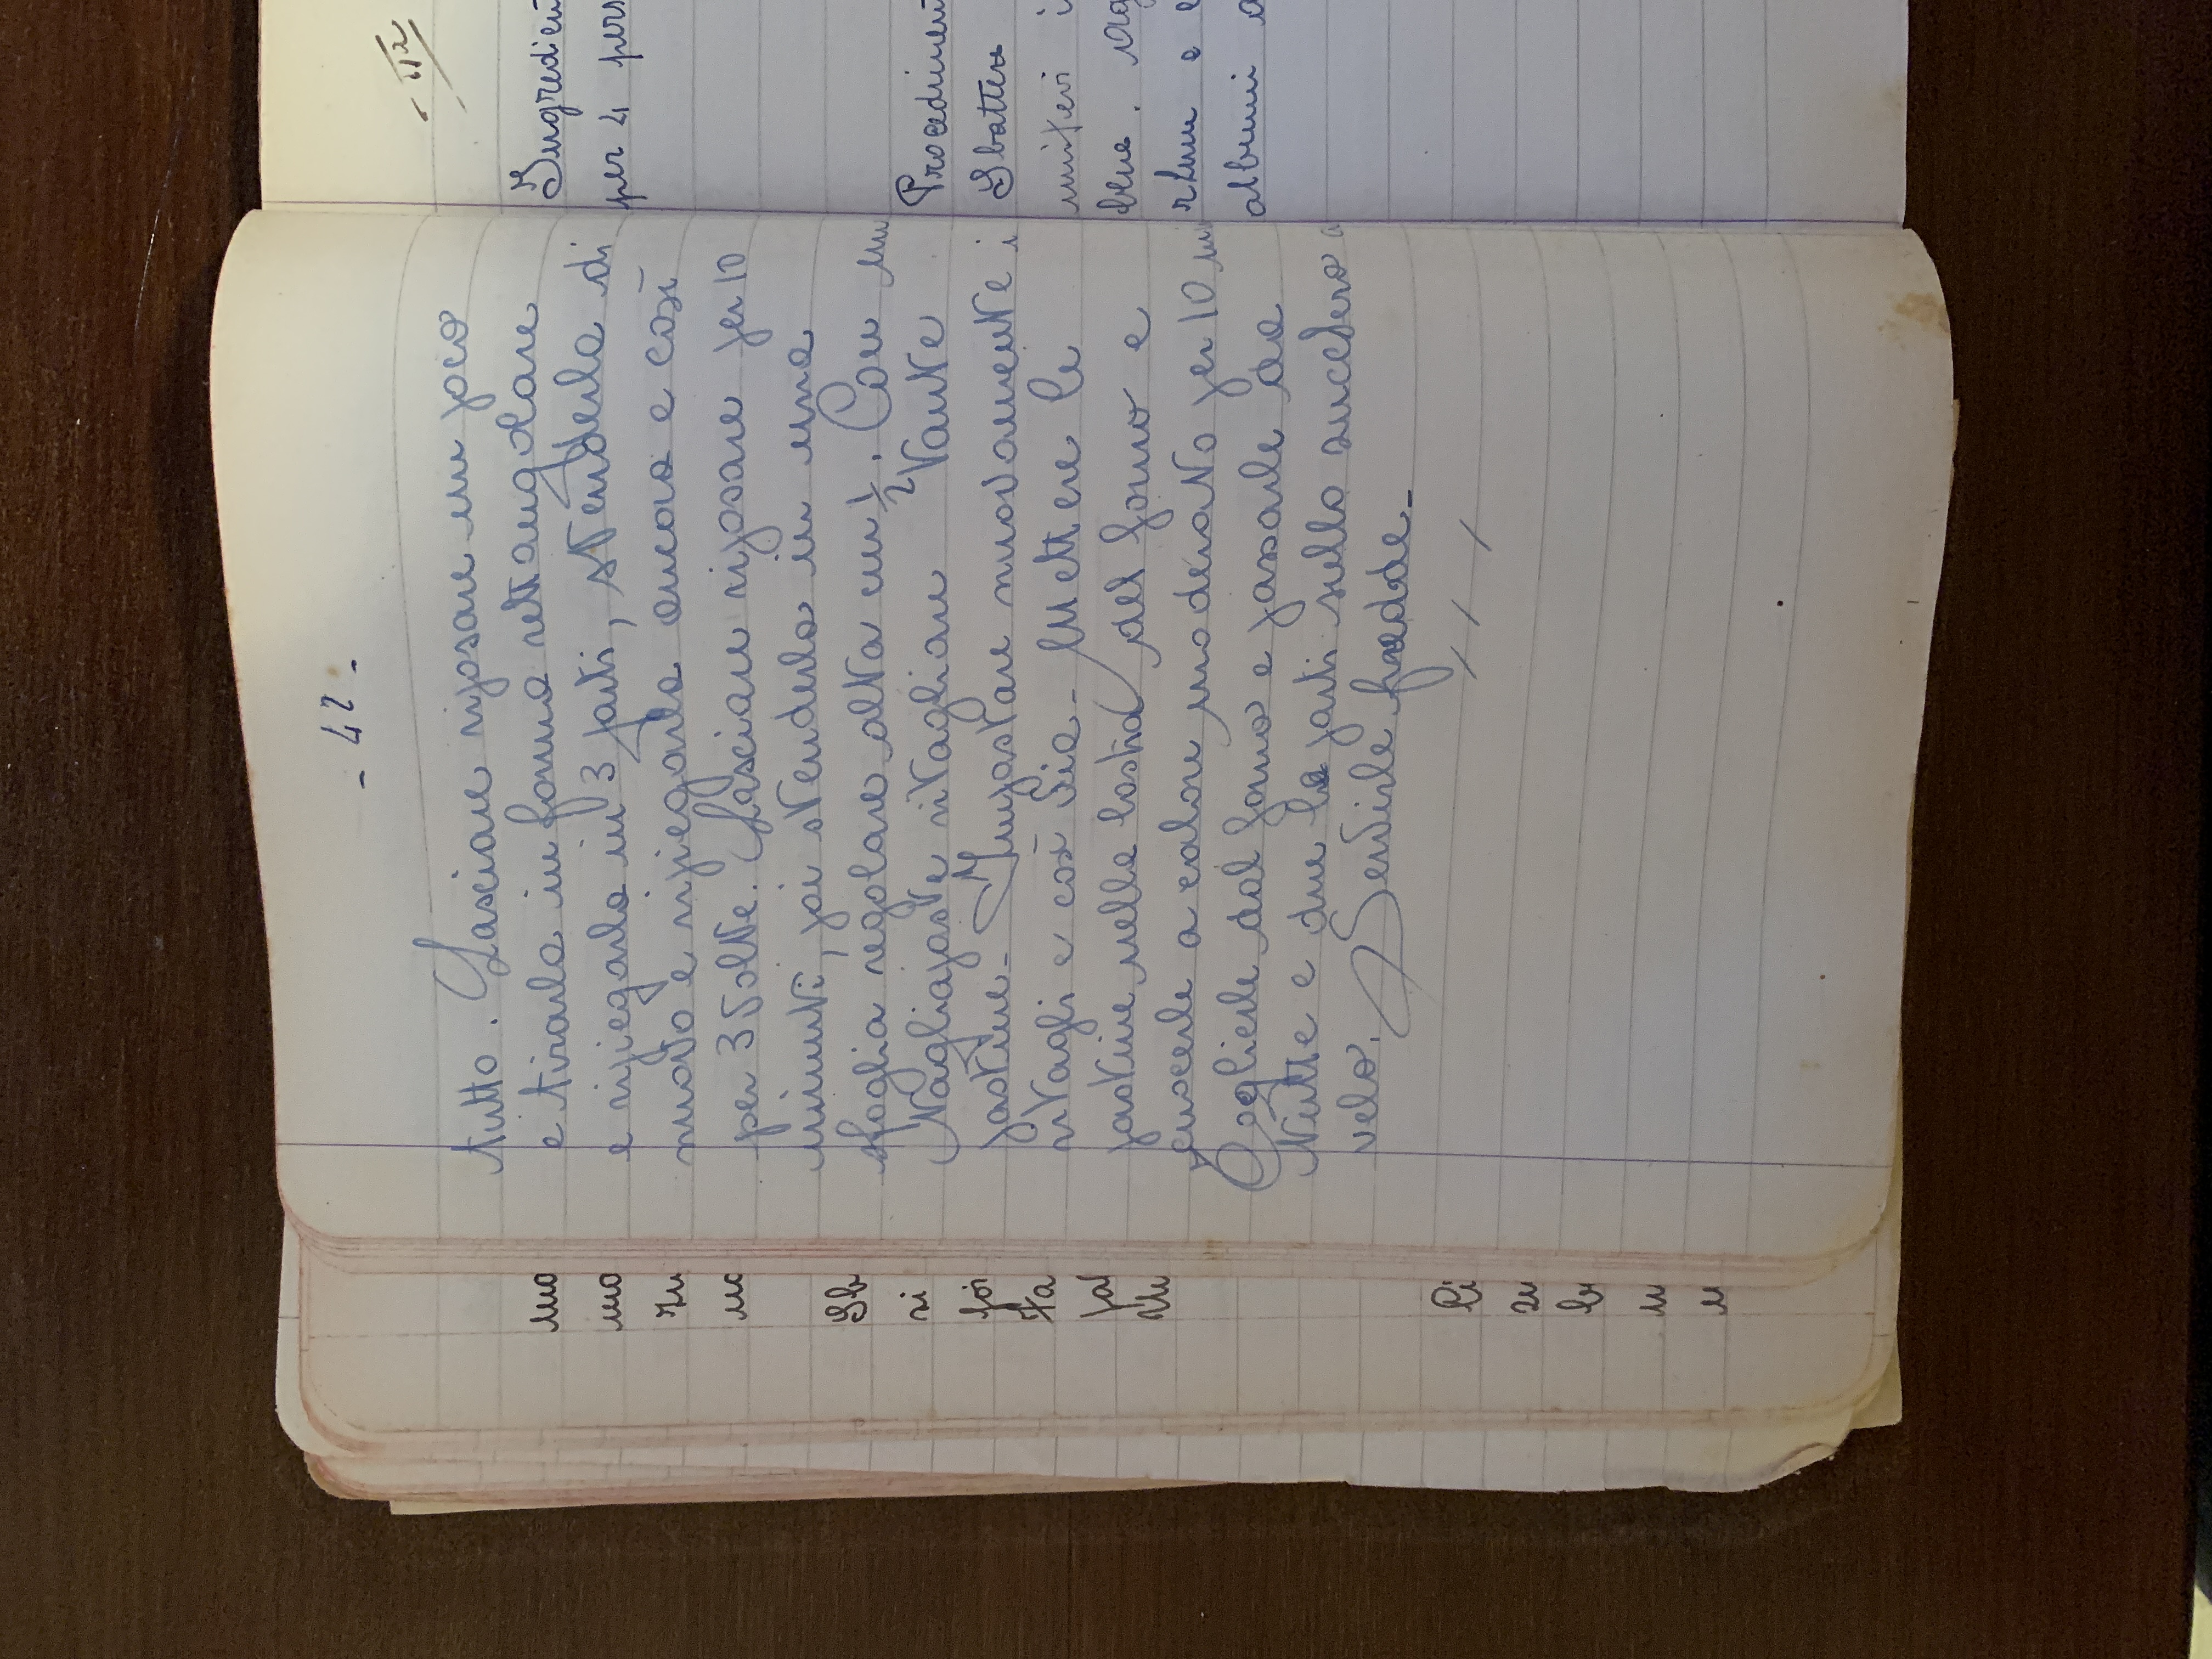 - 42 -
tutto. Lasciare riposare un poco
e tirarla in forma rettangolare
e ripiegarla in 3 parti, stenderla di
nuovo e ripiegarla ancora e così
per 3 volte. Lasciare riposare per 10
minuti, poi stenderla in una
sfoglia regolare alta cm 1/2. Con un
tagliapaste ritagliare tante
pastine - Impastare nuovamente i
ritagli e così via - Mettere le
pastine nella lastra del forno e
cuocerle a calore moderato per 10 mi
Toglierle dal forno e passarle da
tutte e due le parti nello zucchero a
velo. Servirle fredde -
Ingredient
per 4 pers
Procediment
Sbattere
unitevi i
bene. Ag
rhum e
albumi a
mo
mo
zu
mo
Sb
zi
poi
Fa
pa
Ci
zu